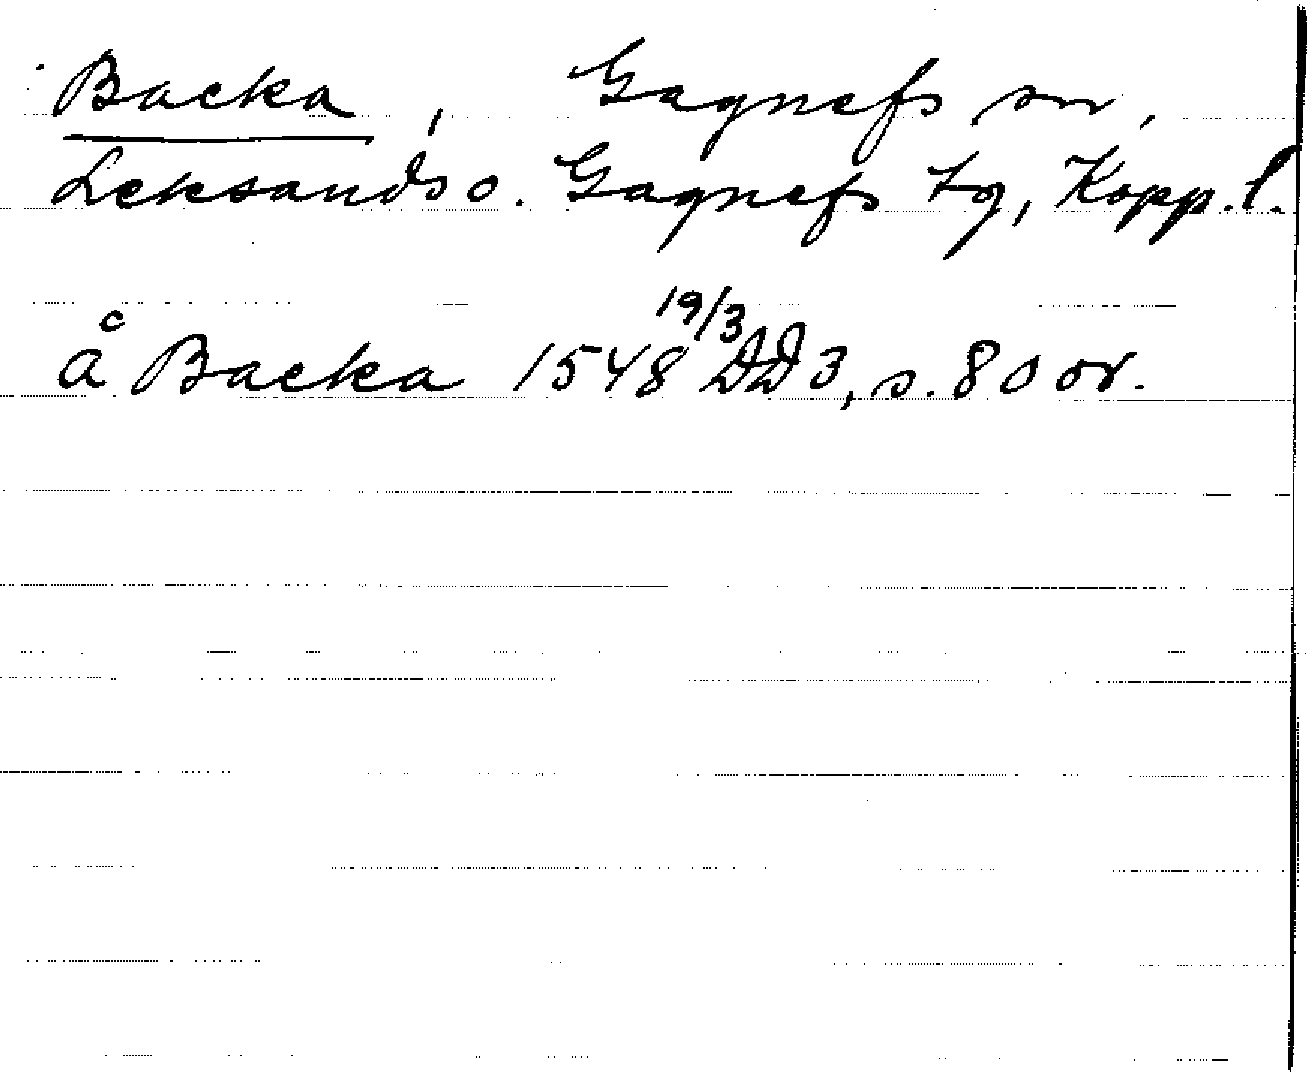 Backa, Gagnefs sn,
Leksands o. Gagnefs tg, Kopp. l.
å Backa 1548 19/3 DD 3, s. 80 or.